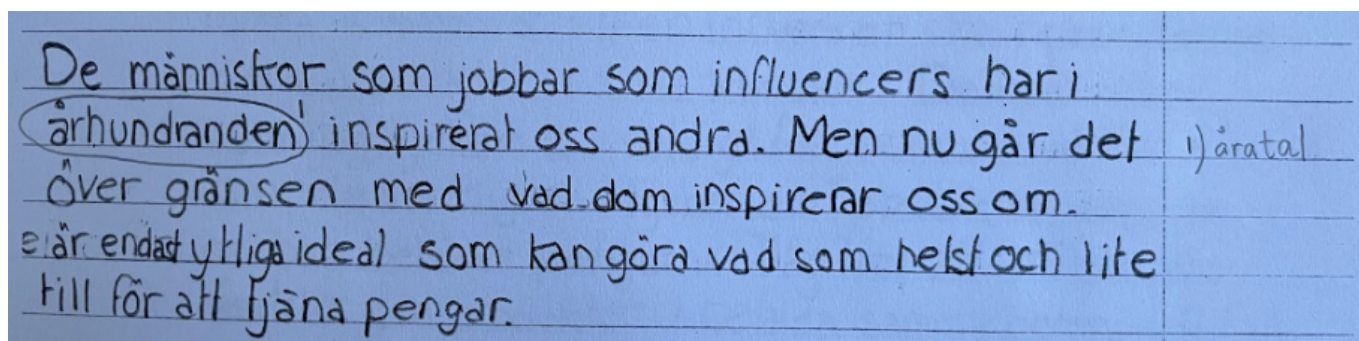 De människor som jobbar som influencers har i
århundranden¹ inspirerat oss andra. Men nu går det 1) åratal
över gränsen med vad dom inspirerar oss om.
e är endast ytliga ideal som kan göra vad som helst och lite
till för att tjäna pengar.